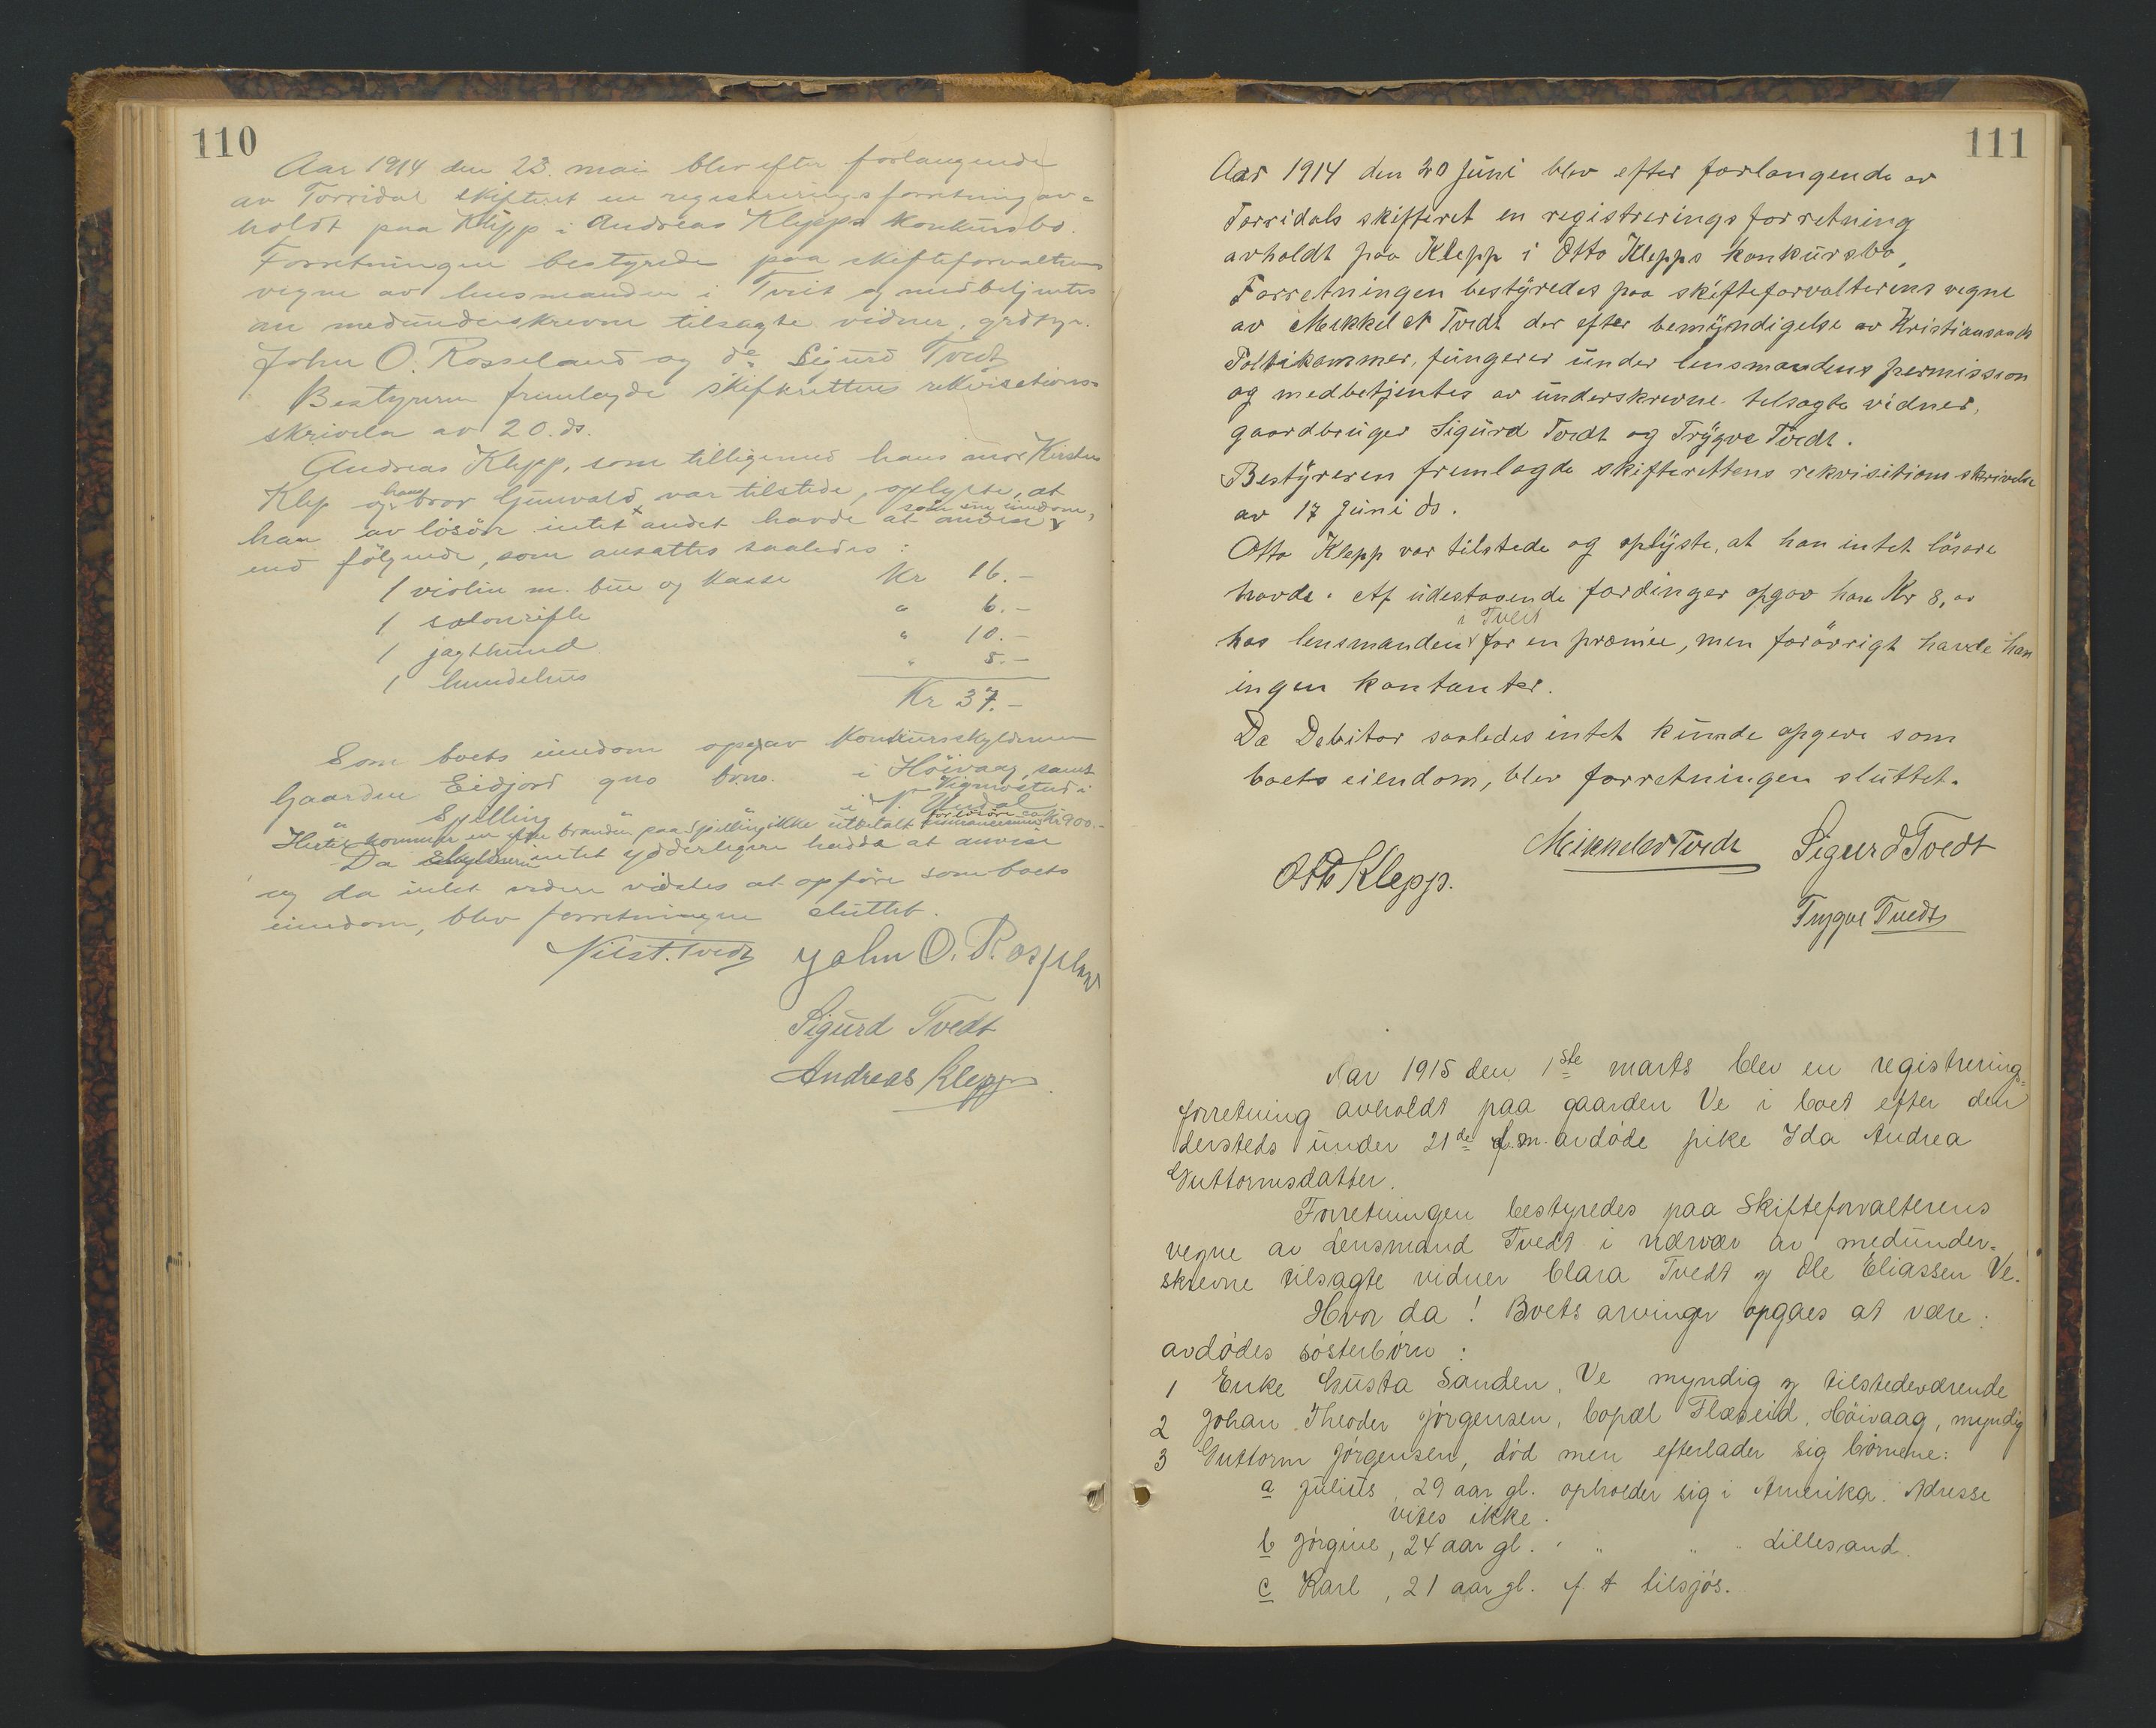 110
Aar 1914 den 23. mai blev efter forlangende
av Torridal skifteret en registreringsforretning av=
holdt paa Klepp i Andreas Klepps konkursbo.
Forretningen bestyredes paa skifteforvalterens
vegne av lensmanden i Tveit og medbetjentes
av medunderskrevne tilsagte vidner, grdbr.
John O. Rosseland og do Sigurd Tvedt
Bestyreren fremlagde skifterettens rekvisitions-
skrivelse av 20. ds.
Andreas Klepp, som tilligemed hans mor Kirsten
Klep og hans bror Gunvald var tilstede, oplyste, at
han av lösöre intet andet havde at anvise som sin eiendom,
end fölgende, som ansattes saaledes:
1 violin m. bue og kasse Kr 16.-
1 salonrifle " 6.-
1 jagthund " 10.-
1 hundehus " 5.-
Kr 37.-
Som boets eiendom opgav konkursskyldneren
Gaarden Eidjord gno brno. i Höivaag, samt
" Spilling i Vigmostad i
Undal
Hertil kommer en for branden paa Spilling ikke utbetalt for lösöre ca Kr 900.-
Da intet ydderligere hadde at anvise
og da intet videre vidstes at opföre som boets
eiendom, blev forretningen sluttet.
Nils T. Tvedt John O. Rosseland
Sigurd Tvedt
Andreas Klepp
111
Aar 1914 den 20 Juni blev efter forlangende av
Torridals skifteret en registreringsforretning
avholdt paa Klepp i Otto Klepps konkursbo,
Forretningen bestyredes paa skifteforvalterens vegne
av Mikkel N Tvedt der efter bemyndigelse av Kristiansands
Politikammer, fungerer under lensmandens permission
og medbetjentes av underskrevne tilsagte vidner,
gaardbruger Sigurd Tvedt og Trygve Tvedt.
Bestyreren fremlagde skifterettens rekvisitions skrivelse
av 17 Juni ds.
Otto Klepp var tilstede og oplyste, at han intet lösöre
havde. Af udestaaende fordinger opgav han Kr 8,00
hos lensmanden i Tveit for en præmie, men forövrigt havde han
ingen kontanter.
Da Debitor saaledes intet kunde opgeve som
boets eiendom, blev forretningen sluttet.
Mikkel N Tvedt Sigurd Tvedt
Otto Klepp.
Trygve Tvedt
Aar 1915 den 1ste marts blev en registrerings=
forretning avholdt paa gaarden Ve i boet efter den
dersteds under 21de f.m. avdöde pike Ida Andrea
Guttormsdatter.
Forretningen bestyredes paa Skifteforvalterens
vegne av Lensmand Tvedt i nærvær av medunder=
skrevne tilsagte vidner Clara Tvedt og Ole Eliassen Ve.
Hvor da! Boets arvinger opgaes at være:
avdödes sösterbörn:
1 Enke Gusta Sanden, Ve myndig og tilstedeværende
2 Johan Theodor Jörgensen, bopæl Flæseid, Höivaag, myndig
3 Guttorm Jörgensen, död men efterlader sig börnene:
a Julius, 29 aar gl. opholder sig i Amerika. Adresse
vites ikke.
b Jörgine, 24 aar gl. " " " " Lillesand.
c Karl, 21 aar gl. f. t tilsjös.